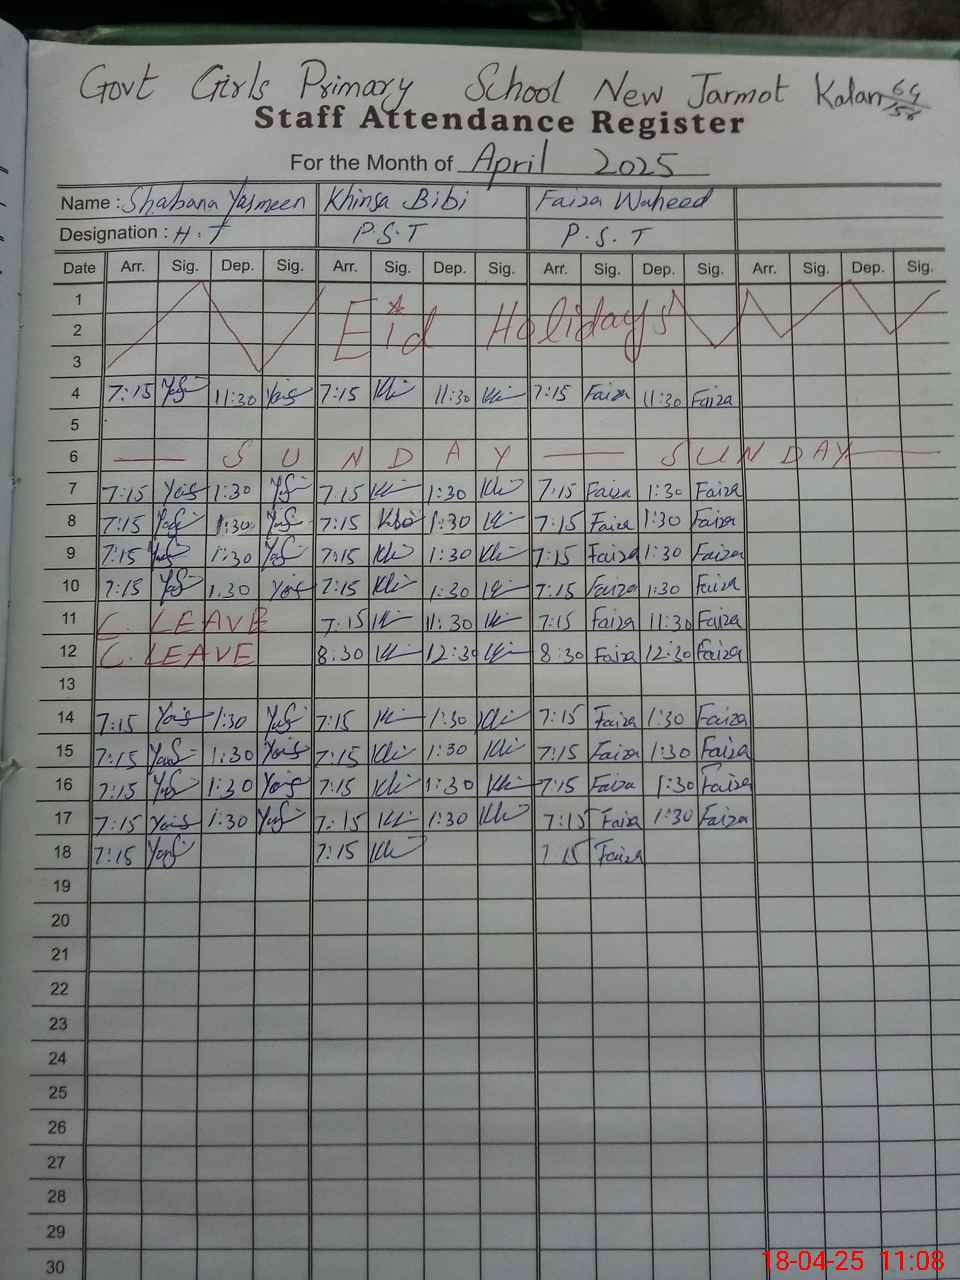 Govt Girls Primary School New Jarmot Kalan
Staff Attendance Register
For the Month of April 2025
Name : Shabana Yasmeen Khinsa Bibi Faiza Waheed
Designation : H.T P.S.T P.S.T
Date Arr. Sig. Dep. Sig. Arr. Sig. Dep. Sig. Arr. Sig. Dep. Sig. Arr. Sig. Dep. Sig.
1
2 Eid Holidays
3
4 7:15 11:30 7:15 11:30 7:15 Faiza 11:30 Faiza
5
6 — S U N D A Y — S U N D A Y —
7 7:15 1:30 7:15 1:30 7:15 Faiza 1:30 Faiza
8 7:15 1:30 7:15 1:30 7:15 Faiza 1:30 Faiza
9 7:15 1:30 7:15 1:30 7:15 Faiza 1:30 Faiza
10 7:15 1.30 7:15 1:30 7:15 Faiza 1:30 Faiza
11 C. LEAVE 7:15 11:30 7:15 Faiza 11:30 Faiza
12 C. LEAVE 8:30 12:30 8:30 Faiza 12:30 Faiza
13
14 7:15 1:30 7:15 1:30 7:15 Faiza 1:30 Faiza
15 7:15 1:30 7:15 1:30 7:15 Faiza 1:30 Faiza
16 7:15 1:30 7:15 1:30 7:15 Faiza 1:30 Faiza
17 7:15 1:30 7:15 1:30 7:15 Faiza 1:30 Faiza
18 7:15 7:15 7 15 Faiza
19
20
21
22
23
24
25
26
27
28
29
30
18-04-25 11:08